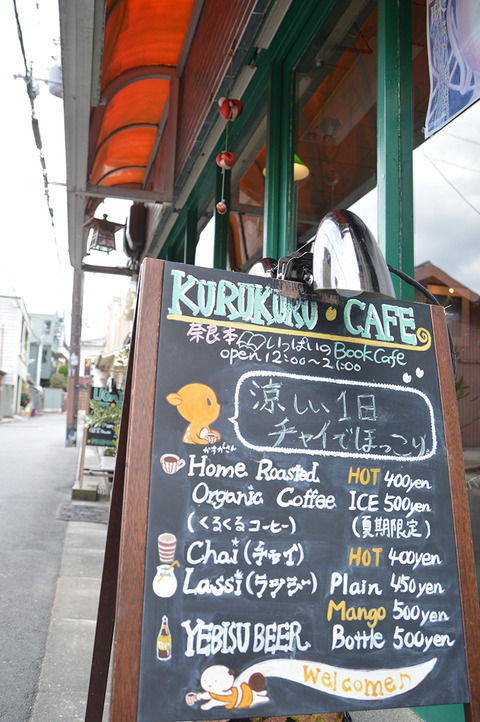 KURUKURU CAFE
奈良本いっぱいのBookCafe
open 12:00~21:00
涼しい1日
チャイでほっこり
かすがさん
Home Roasted HOT 400yen
Organic Coffee ICE 500yen
(くるくるコーヒー) (夏期限定)
Chai(チャイ) HOT 400yen
Lassi(ラッシー) Plain 450yen
Mango 500yen
YEBISU BEER Bottle 500yen
Welcome♪